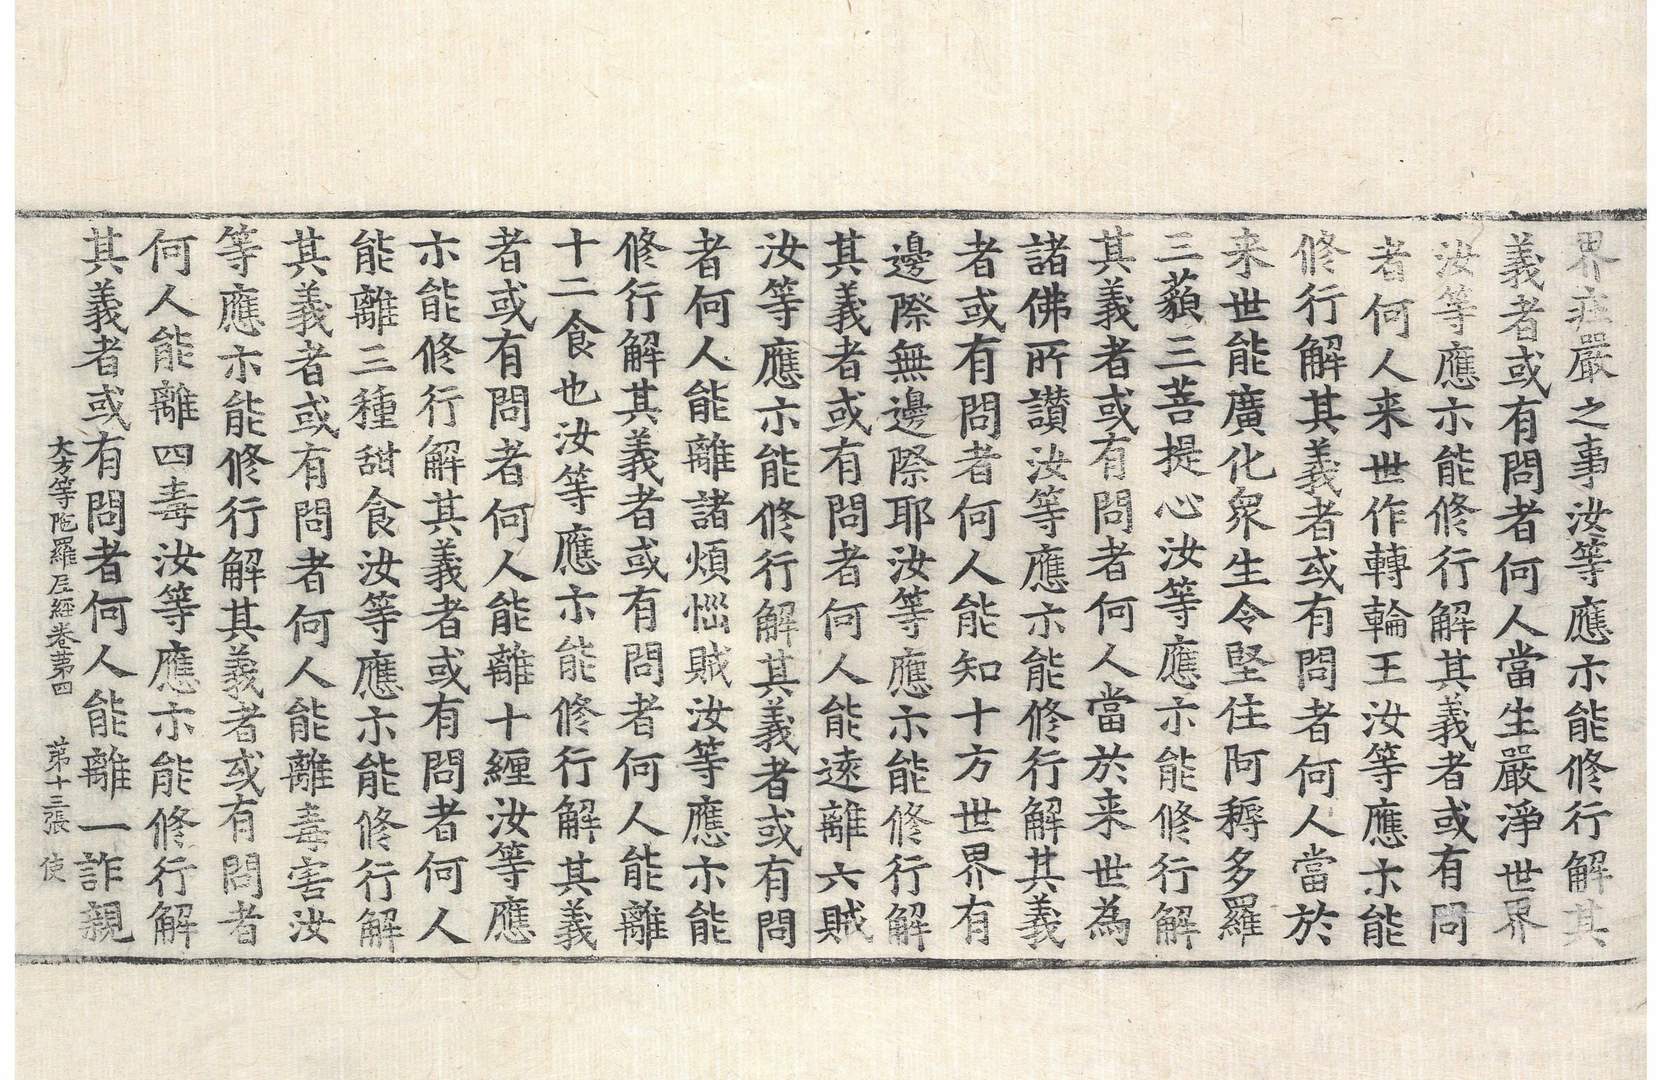 界疰嚴之事汝等應亦能修行解其
義者或有問者何人當生嚴淨世界
汝等應亦能修行解其義者或有問
者何人来世作轉輪王汝等應亦能
修行解其義者或有問者何人當於
来世能廣化衆生令堅住阿耨多羅
三藐三菩提心汝等應亦能修行解
其義者或有問者何人當於来世為
諸佛所讃汝等應亦能修行解其義
者或有問者何人能知十方世界有
邊際無邊際耶汝等應亦能修行解
其義者或有問者何人能遠離六賊
汝等應亦能修行解其義者或有問
者何人能離諸煩惱賊汝等應亦能
修行解其義者或有問者何人能離
十二食也汝等應亦能修行解其義
者或有問者何人能離十纒汝等應
亦能修行解其義者或有問者何人
能離三種甜食汝等應亦能修行解
其義者或有問者何人能離毒害汝
等應亦能修行解其義者或有問者
何人能離四毒汝等應亦能修行解
其義者或有問者何人能離一詐親
大方等陁羅尼經卷苐四 苐十三張 使